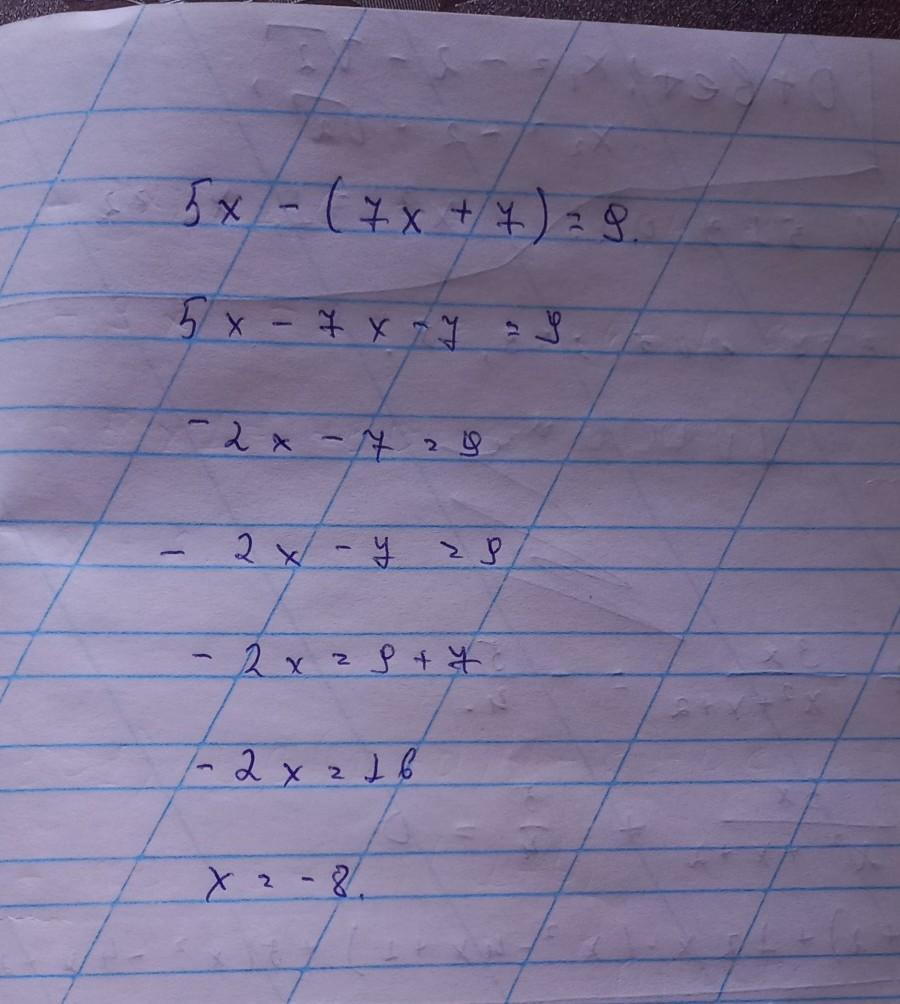 5x - (7x + 7) = 9.
5x - 7x - 7 = 9.
- 2x - 7 = 9
- 2x - 7 = 9
- 2x = 9 + 7
- 2x = 16
x = - 8.